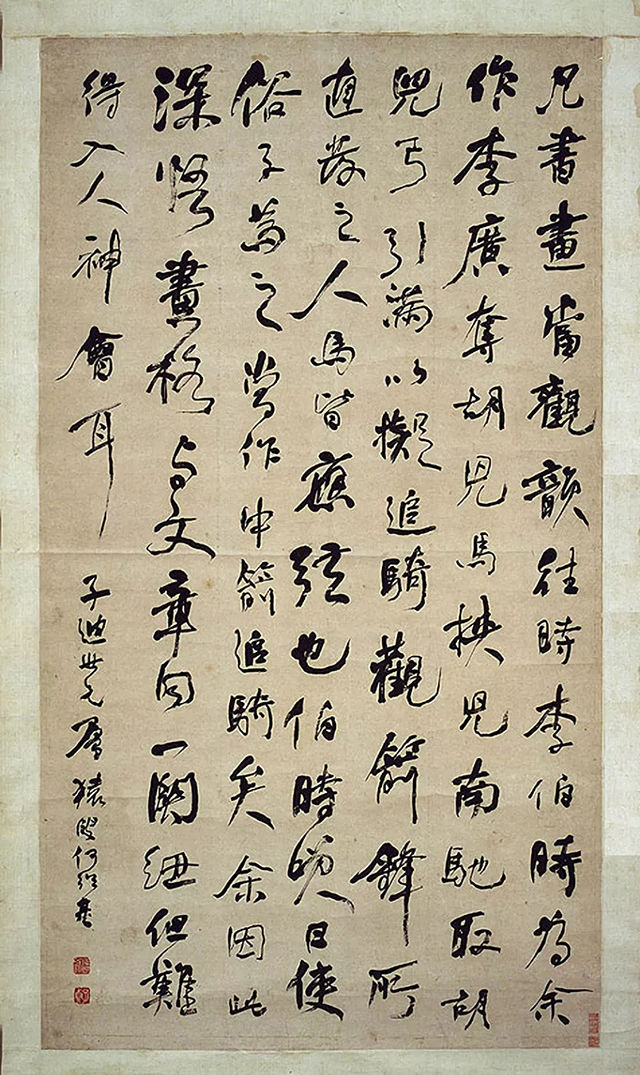 凡書畫當觀韻往時李伯時為余
作李廣奪胡兒馬挾兒南馳取胡
兒弓引滿以擬追騎觀箭鋒所
直發之人馬皆應弦也伯時笑曰使
俗子為之當作中箭追騎矣余因此
深悟畫格与文章同一關紐但難
得入人神會耳
子迪世兄屬猿叟何紹基